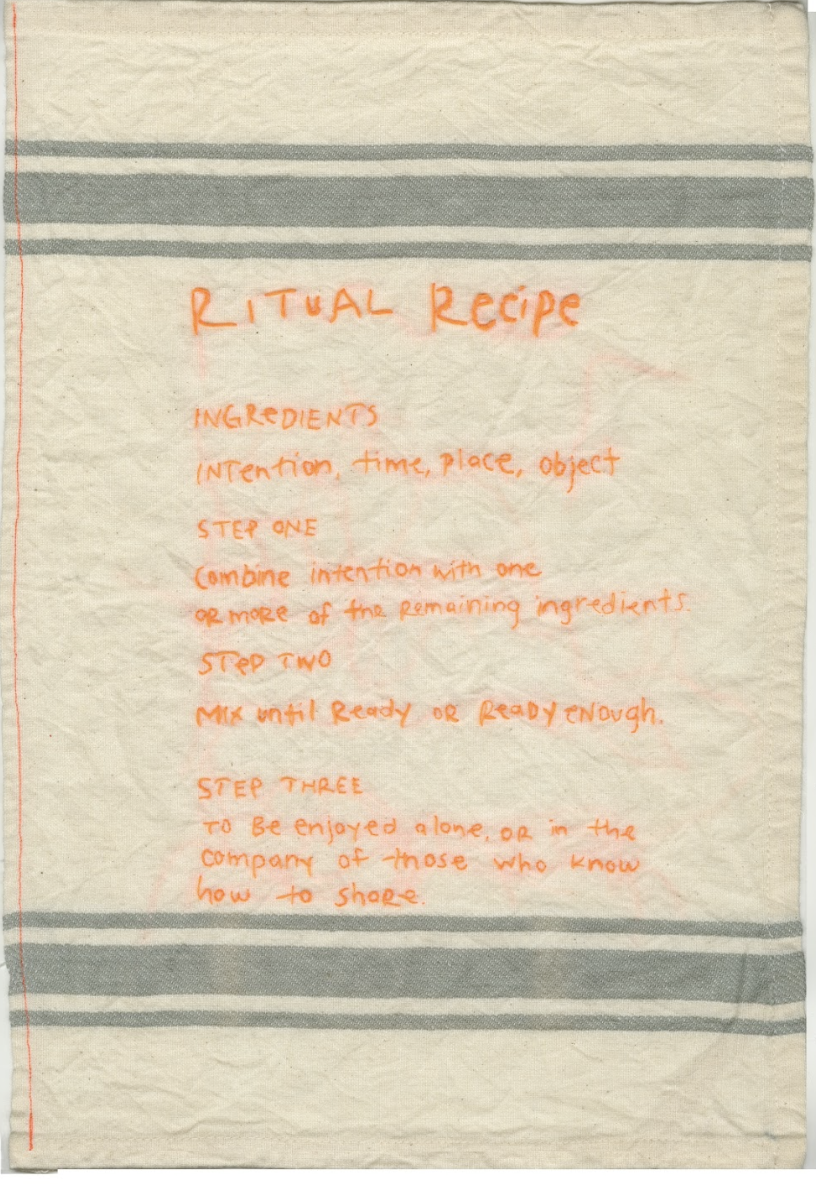 RITUAL Recipe
INGReDIENTS
INTention, time, place, object
STEP ONE
Combine intention with one
OR more of the Remaining ingredients.
STeP TWO
Mix until Ready OR ReADy eNough.
STEP THREE
TO Be enjoyed alone, OR in the
company of those who know
how to share.